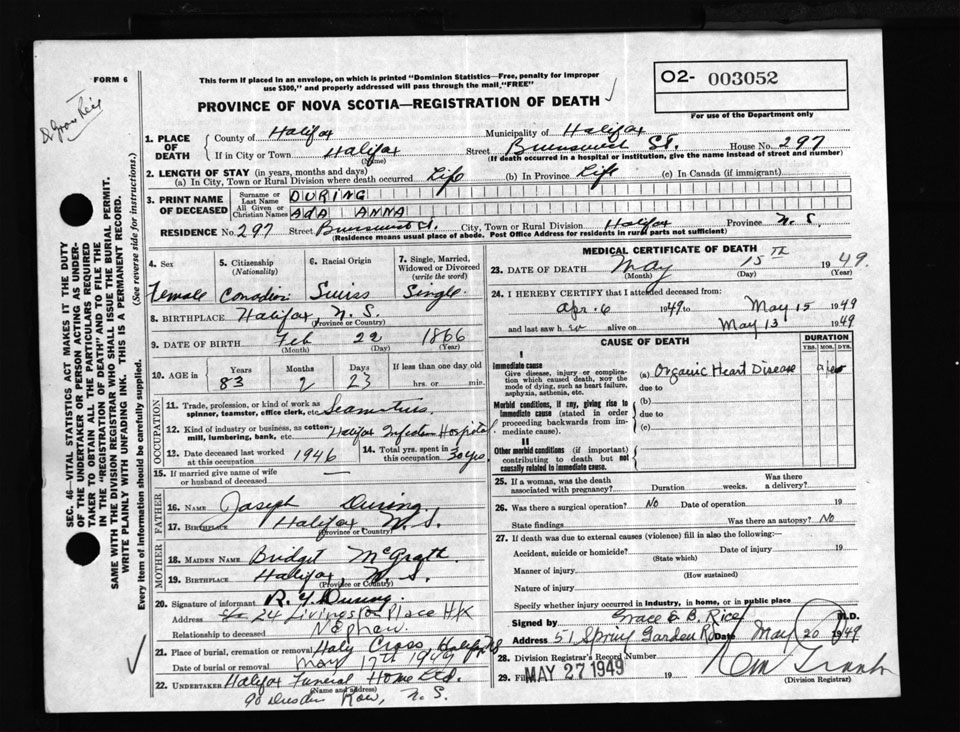 FORM 6
This form if placed in an envelope, on which is printed "Dominion Statistics—Free, penalty for improper
use $300," and properly addressed will pass through the mail, "FREE"
PROVINCE OF NOVA SCOTIA—REGISTRATION OF DEATH
O2- 003052
For use of the Department only
SEC. 46—VITAL STATISTICS ACT MAKES IT THE DUTY
OF THE UNDERTAKER OR PERSON ACTING AS UNDER-
TAKER TO OBTAIN ALL THE PARTICULARS REQUIRED
IN THE "REGISTRATION OF DEATH" AND TO FILE THE
SAME WITH THE DIVISION REGISTRAR WHO SHALL ISSUE THE BURIAL PERMIT.
WRITE PLAINLY WITH UNFADING INK. THIS IS A PERMANENT RECORD.
(See reverse side for instructions.)
Every item of Information should be carefully supplied.
1. PLACE OF DEATH County of Halifax Municipality of Halifax
If in City or Town Halifax (Name) Street Brunswick St. House No. 297
(If death occurred in a hospital or institution, give the name instead of street and number)
2. LENGTH OF STAY (in years, months and days)
(a) In City, Town or Rural Division where death occurred Life (b) In Province Life (c) In Canada (if immigrant)
3. PRINT NAME OF DECEASED Surname or Last Name DURING
All Given or Christian Names ADA ANNA
RESIDENCE No. 297 Street Brunswick St. City, Town or Rural Division Halifax Province N.S.
(Residence means usual place of abode. Post Office Address for residents in rural parts not sufficient)
4. Sex 5. Citizenship (Nationality) 6. Racial Origin 7. Single, Married, Widowed or Divorced (write the word)
Female Canadian Swiss Single
8. BIRTHPLACE Halifax, N.S.
(Province or Country)
9. DATE OF BIRTH Feb 22 1866
(Month) (Day) (Year)
10. AGE in Years Months Days If less than one day old
83 2 23 hrs. or min.
OCCUPATION
11. Trade, profession, or kind of work as spinner, teamster, office clerk, etc.
12. Kind of industry or business, as cotton-mill, lumbering, bank, etc. Halifax Hospital
13. Date deceased last worked at this occupation 1946 14. Total yrs. spent in this occupation 30 yrs.
15. If married give name of wife or husband of deceased —
FATHER
16. NAME Joseph During
17. BIRTHPLACE Halifax N.S.
(Province or Country)
MOTHER
18. MAIDEN NAME Bridget McGrath
19. BIRTHPLACE Halifax N.S.
(Province or Country)
20. Signature of informant R. During
Address 24 Livingstone Place Hfx
Relationship to deceased Nephew
21. Place of burial, cremation or removal Holy Cross Halifax NS
Date of burial or removal May 17th 1949
22. UNDERTAKER Halifax Funeral Home Ltd.
(Name and address)
90 Dresden Row, N.S.
MEDICAL CERTIFICATE OF DEATH
23. DATE OF DEATH May 15TH 1949
(Month) (Day) (Year)
24. I HEREBY CERTIFY that I attended deceased from:
Apr. 6 1949 to May 15 1949
and last saw her alive on May 13 1949
CAUSE OF DEATH DURATION
YRS. MOS. DYS.
I
Immediate cause
Give disease, injury or complication which caused death, not the mode of dying, such as heart failure, asphyxia, asthenia, etc.
(a) Organic Heart Disease
due to
Morbid conditions, if any, giving rise to immediate cause (stated in order proceeding backwards from immediate cause).
(b)
due to
(c)
II
Other morbid conditions (if important) contributing to death but not causally related to immediate cause.
25. If a woman, was the death associated with pregnancy? Duration weeks. Was there a delivery?
26. Was there a surgical operation? No Date of operation 19
State findings Was there an autopsy? No
27. If death was due to external causes (violence) fill in also the following:—
Accident, suicide or homicide? (State which) Date of injury 19
Manner of injury (How sustained)
Nature of injury
Specify whether injury occurred in industry, in home, or in public place
Signed by Grace E. B. Rice M.D.
Address 51 Spring Garden Rd Date May 20 1949
28. Division Registrar's Record Number
29. Filed MAY 27 1949 19
(Division Registrar)